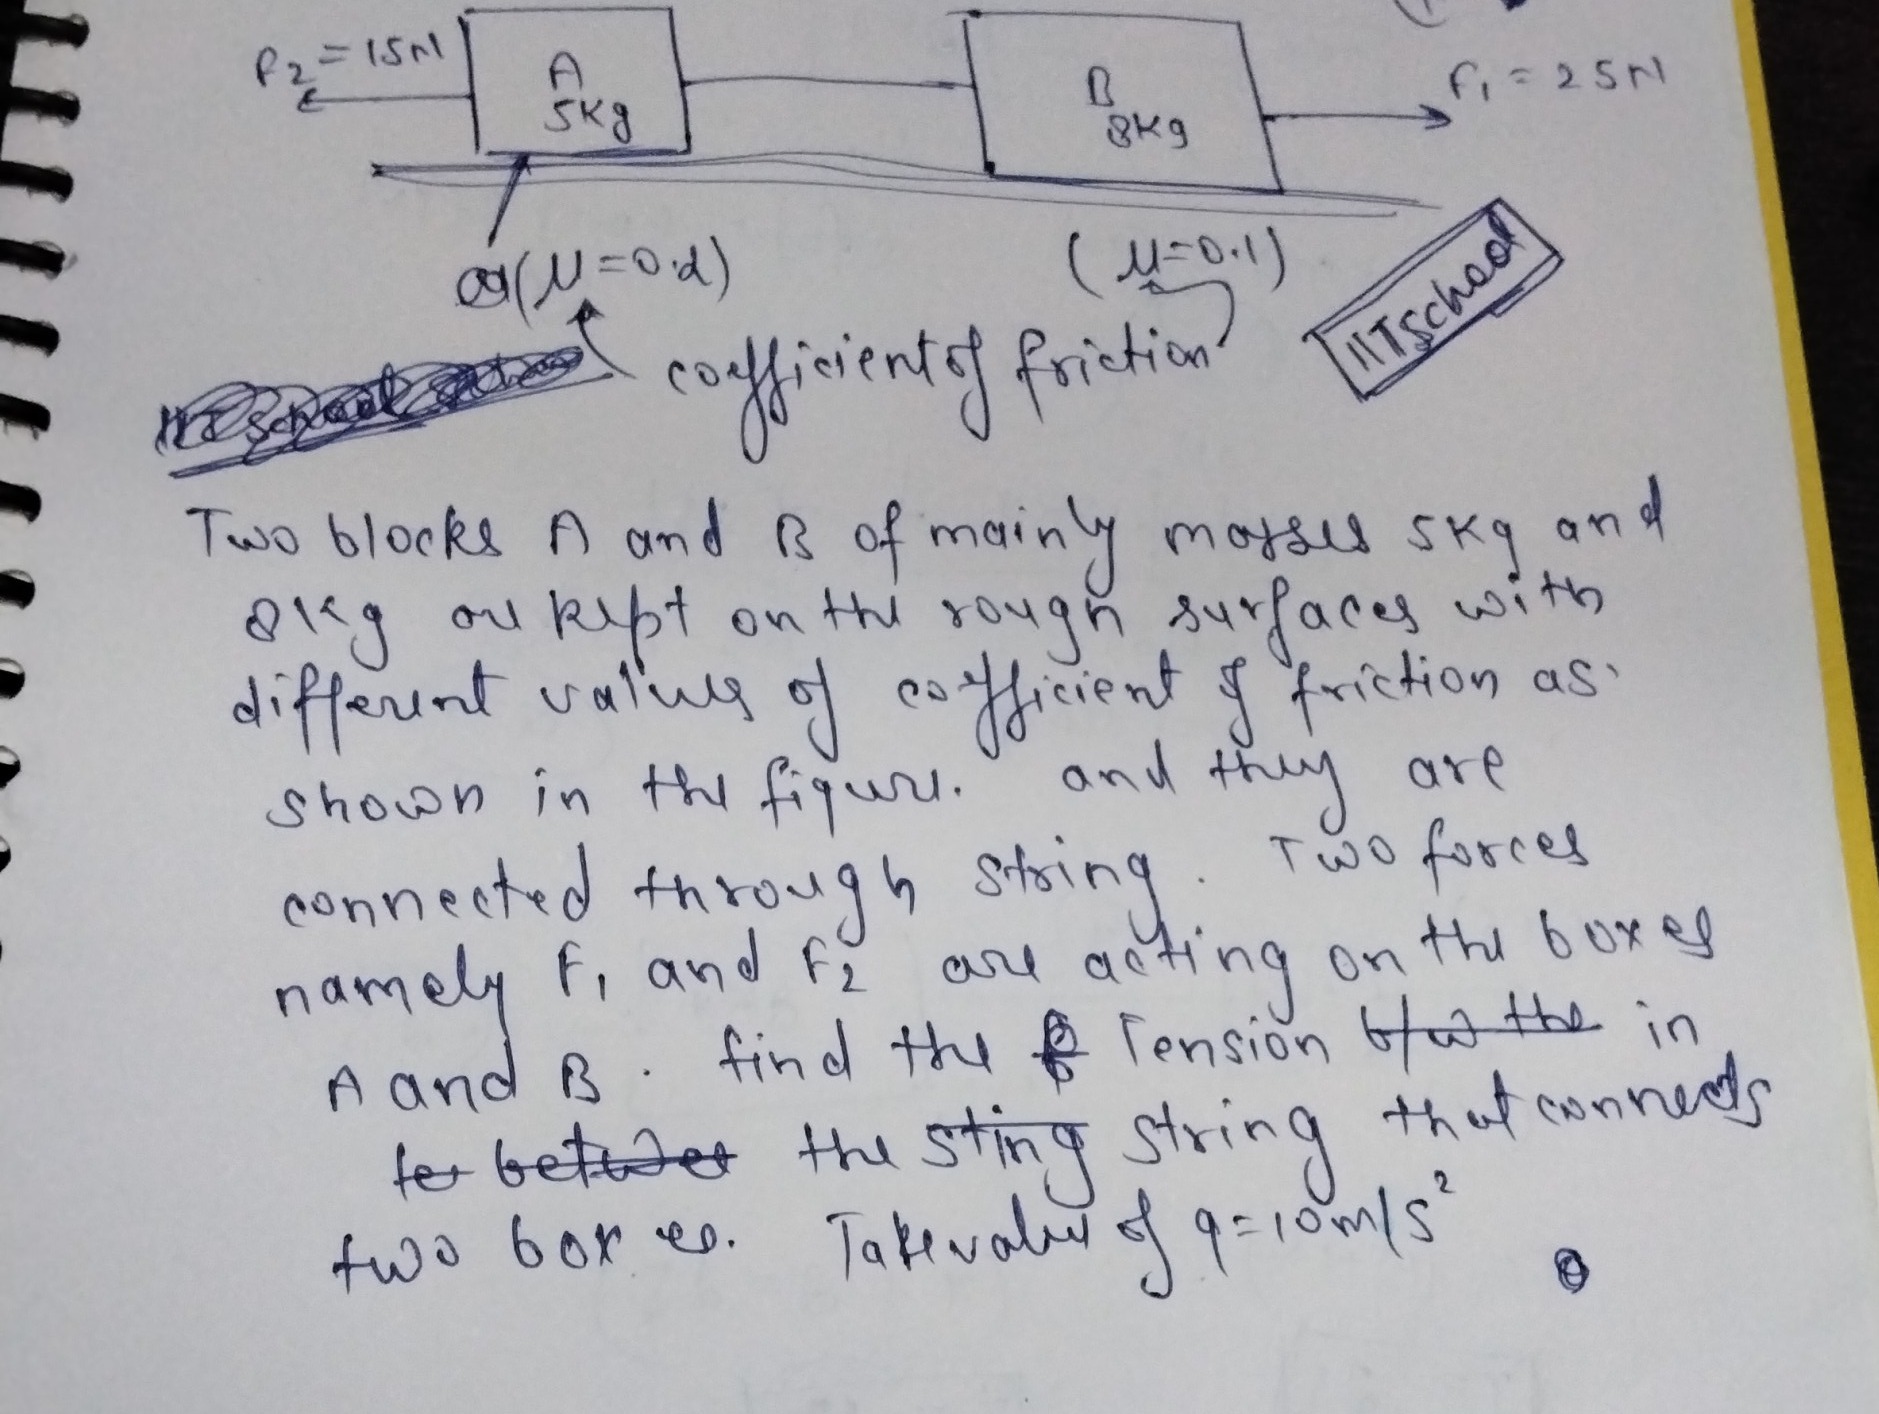 F2 = 15N
A
5Kg
B
8Kg
F1 = 25N
(μ=0.2)
(μ=0.1)
IITschool
coefficient of friction
Two blocks A and B of mainly masses 5Kg and
8Kg are kept on the rough surfaces with
different values of coefficient of friction as
shown in the figure. and they are
connected through string. Two forces
namely F1 and F2 are acting on the boxes
A and B. find the Tension b/w the in
between the sting string that connects
two boxes. Take value of g=10m/s²